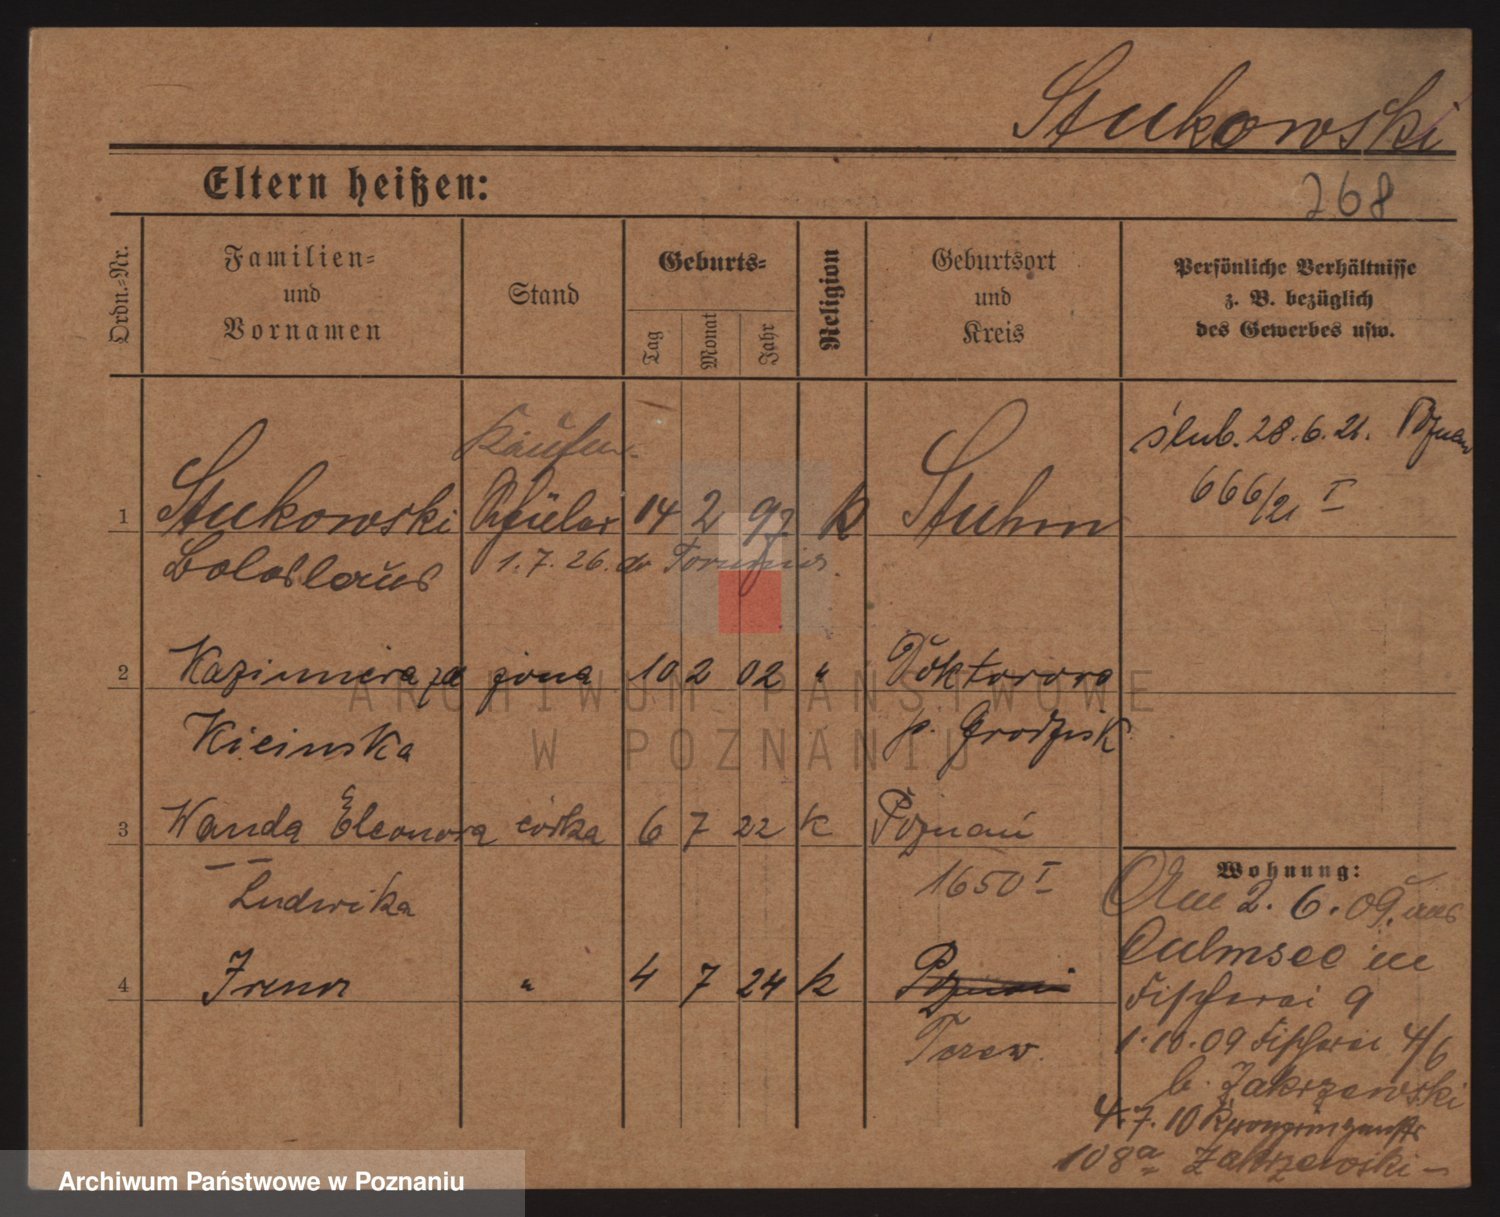 Stukowski
Eltern heißen:
268
Ordn.-Nr.
Familien-
und
Vornamen
Stand
Geburts-
Tag
Monat
Jahr
Religion
Geburtsort
und
Kreis
Persönliche Verhältnisse
z. B. bezüglich
des Gewerbes usw.
Kaufm.
ślub. 28.6.21. Poznań
666/21 I
1 Stukowski Schüler 14 2 97 k Stuhm
Boleslaus 1.7.26. do Torunia.
2 Kazimiera zd żona 10 2 02 " Doktorowo
Kicinska p. Grodzisk
3 Wanda Eleonora córka 6 7 22 k Poznań
Ludwika 1650 I
4 Irena " 4 7 24 k Poznań
Tczew.
Wohnung:
Am 2.6.09. aus
Culmsee in
Fischerei 9
1.10.09 Fischerei 4/6
b. Zakrzewski
4.7.10 Kronprinzenstr
108a Zakrzewski
ARCHIWUM PAŃSTWOWE
W POZNANIU
Archiwum Państwowe w Poznaniu